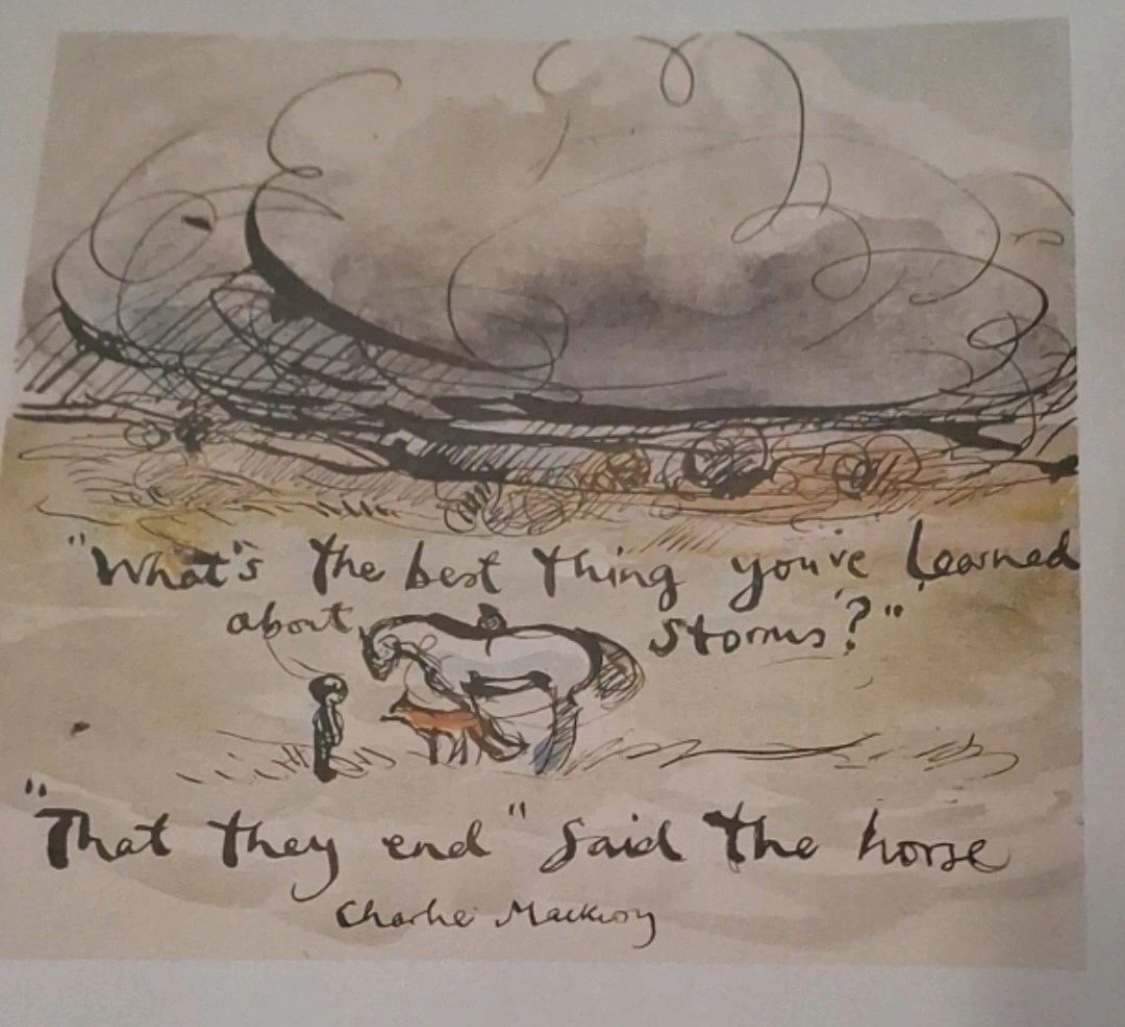 "What's the best thing you've learned
about storms?"
"That they end" said the horse
Charlie Mackesy